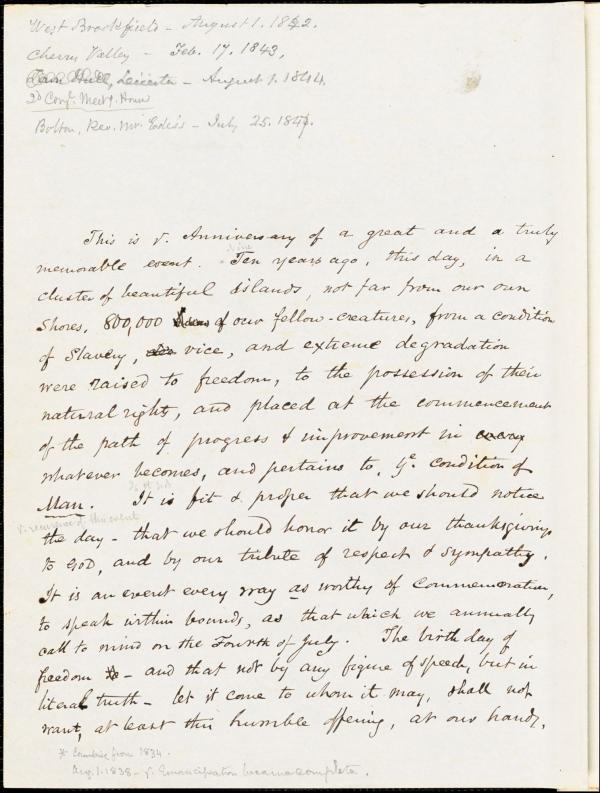 West Brookfield - August 1. 1842.
Cherry Valley - Feb. 17. 1843.
Leicester - August 1. 1844.
2d Congl. Meetg. House
Bolton, Rev. Mr. - July 25. 1847.
This is ye. Anniversary of a great and a truly
Nine
memorable event. Ten years ago, this day, in a
cluster of beautiful islands, not far from our own
Shores, 800,000 of our fellow-creatures, from a condition
of Slavery, vice, and extreme degradation
were raised to freedom, to the possession of their
natural right, and placed at the commencement
of the path of progress & improvement in
whatever becomes, and pertains to, ye. condition of
Man. It is fit & proper that we should notice
ye. recurrence of this event
the day - that we should honor it by our thanksgivings
to God, and by our tribute of respect & sympathy.
It is an event every way as worthy of Commemoration,
to speak within bounds, as that which we annually
call to mind on the Fourth of July. The birth day of
freedom - and that not by any figure of speech, but in
literal truth - let it come to whom it may, shall not
want, at least this humble offering, at our hands.
* Counting from 1834.
Aug. 1. 1838 - ye. Emancipation became complete.